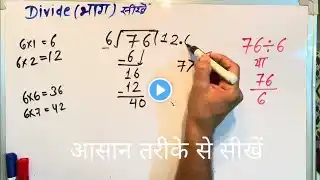 Divide (भाग) सीखें
6x1 = 6
6x2 = 12
6x6 = 36
6x7 = 42
6√76(12.6
-6↓
16
-12
40
7>
76÷6
या
76
6
आसान तरीके से सीखें